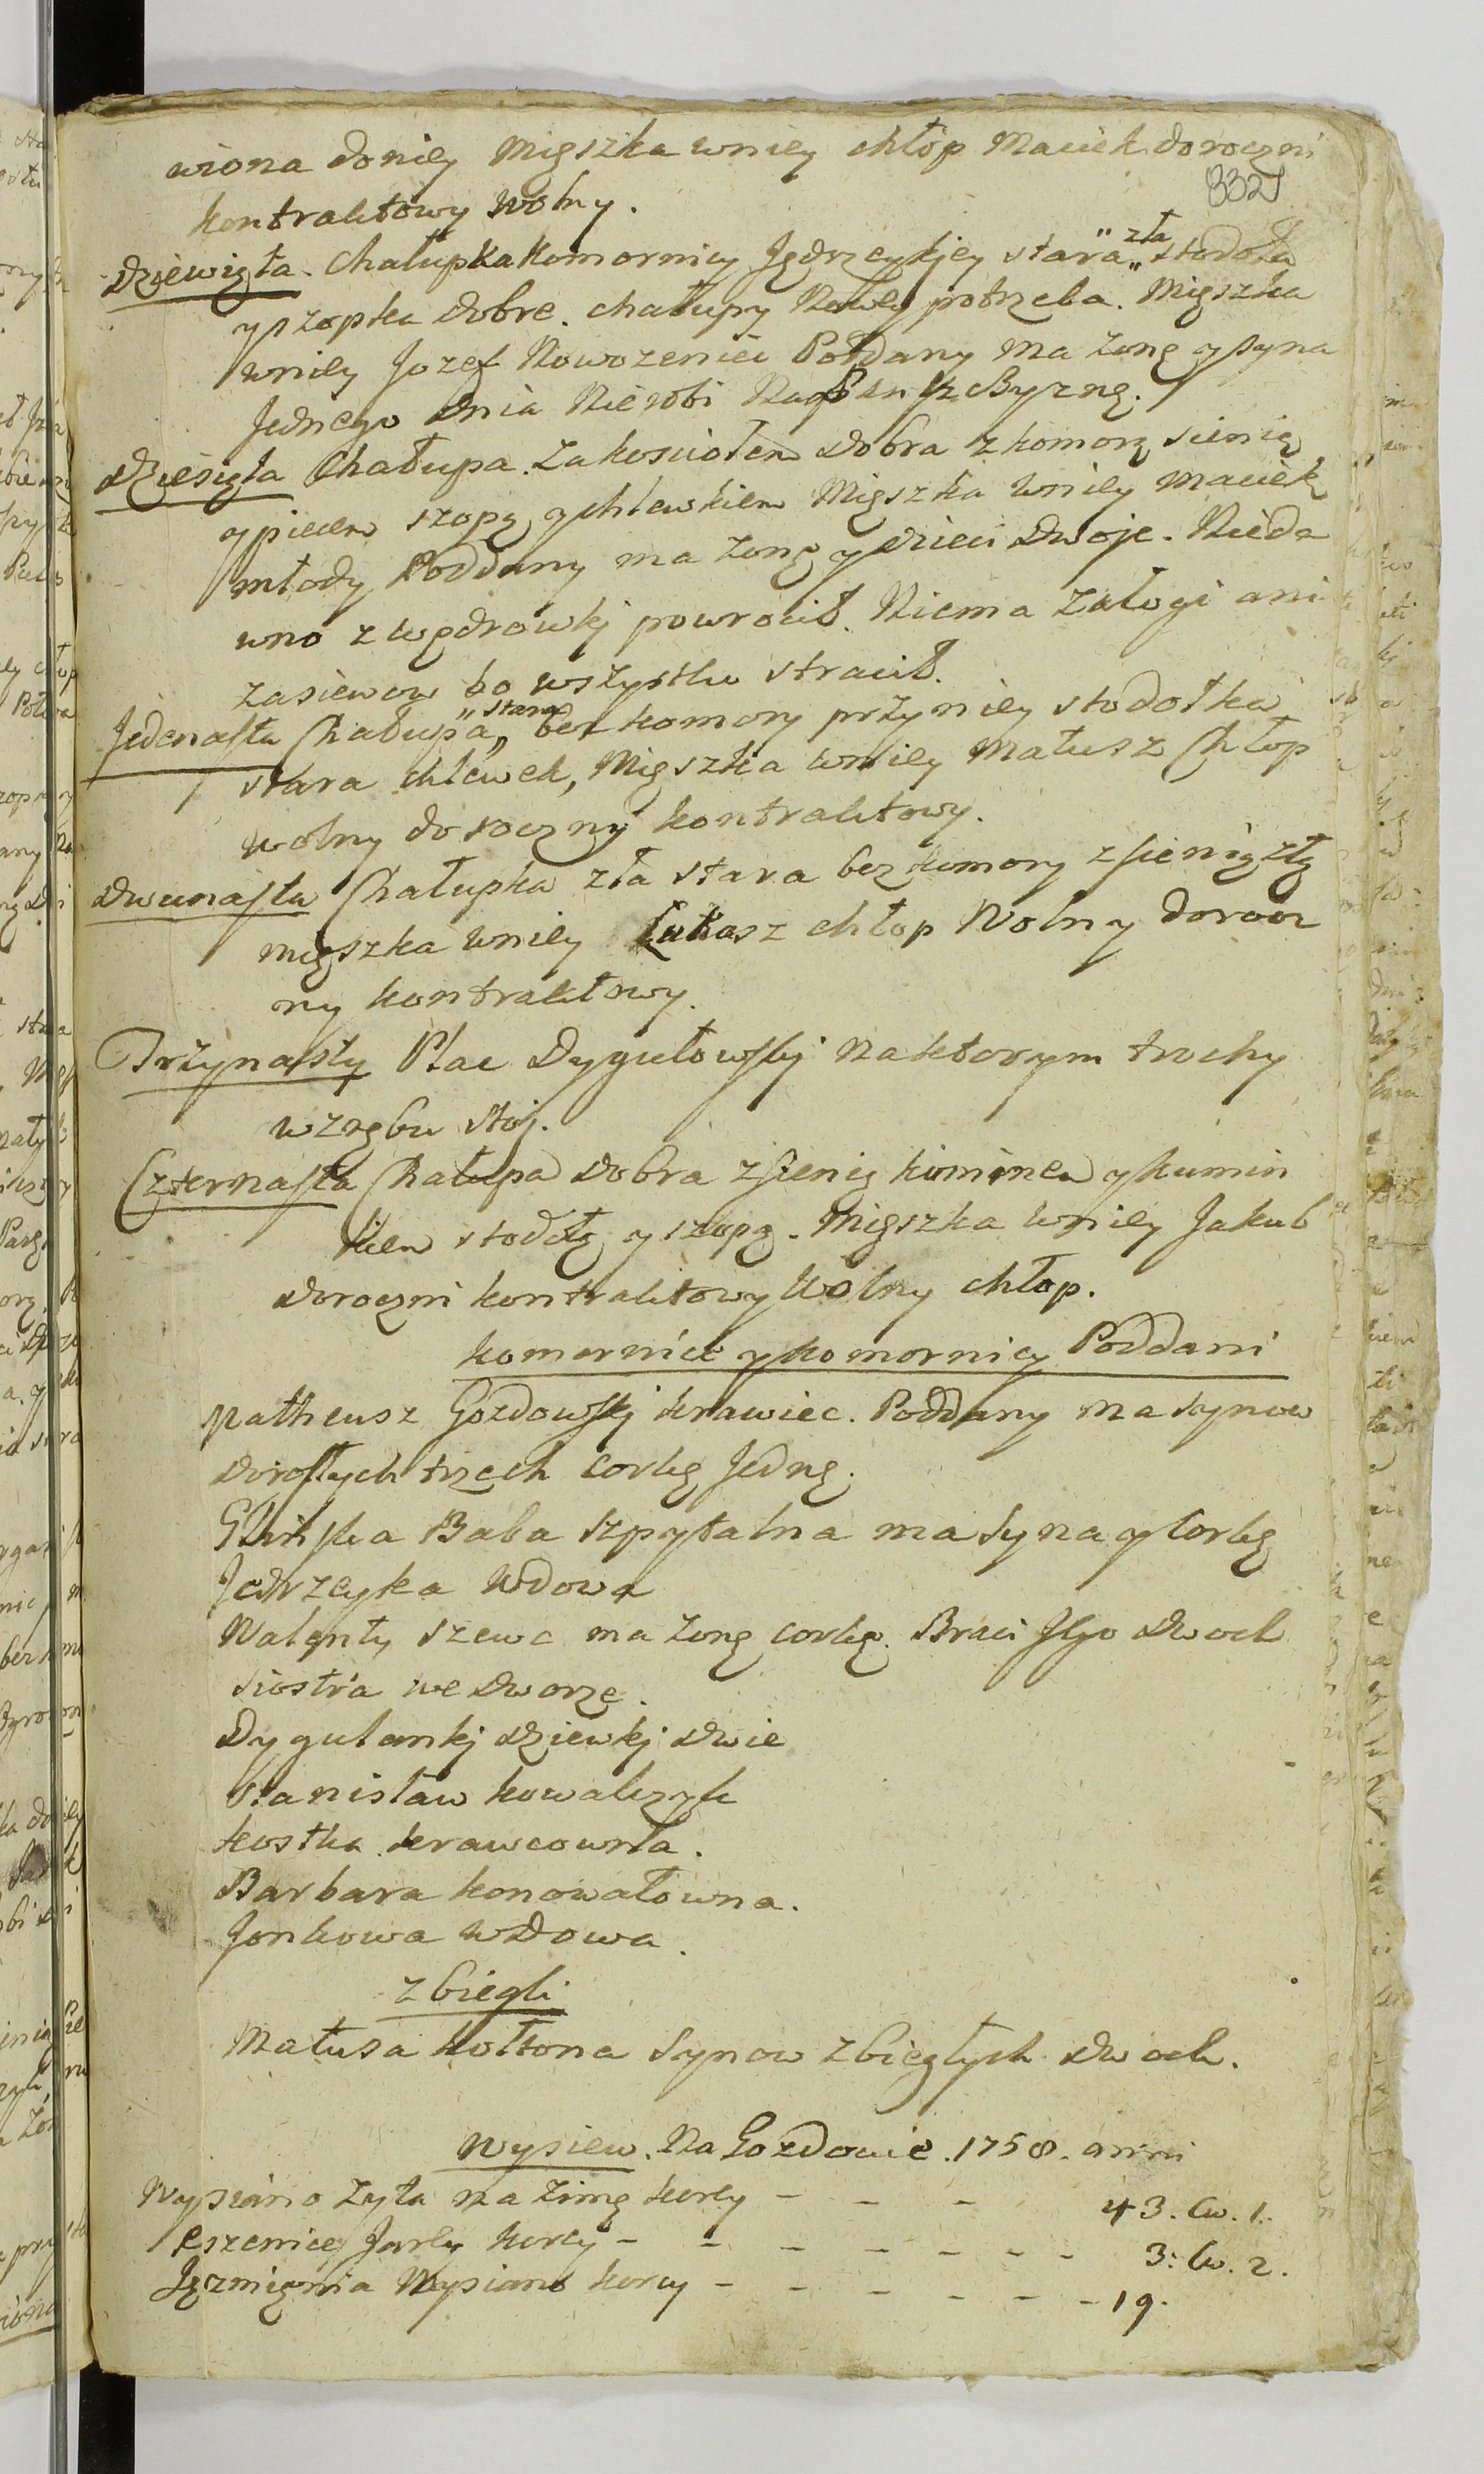 wiona doniey Mięszka wniey chłop Maciek doroczni
332
kontraktowy wolny.
Dziewięta Chałupka Komornicy Jędrzeykjey stara „ zła „ stodoła
y szopka dobre. chałupy Nowey potrzeba. Mięszka
wniey Jozef Nowozeniec Poddany ma zonę y syna
Jednego dnia Nierobi
dziesięta Chałupa. Za kosciołem dobra z komorą sienią
y piecem szopą y chlewkiem Mięszka wniey Maciek
młody Poddany ma zonę y dzieci Dwoje. Nieda
wno z wędrowkj powrocił. Niema załogi ani
zasiewow bo wszystko stracił.
Jedenasta Chałupa „ stara „ bez komory przy niey stodołka
stara chlewek, Mięszka wniey Matusz Chłop
wolny doroczny kontraktowy.
dwunasta Chałupka zła stara bez komory z sienią złą
mięszka wniey Łukasz chłop Wolny dorocz
ny kontraktowy.
Trzynasty Plac Dygułowskj Naktorym trochy
wzrębu stoj.
Czternasta Chałupa dobra z sienią kominem y kumin
kiem stodołą y szopą. Mięszka wniey Jakub
doroczni kontraktowy Wolny chłop.
komornice y komornicy Poddani
Matheusz Gozdowskj krawiec. Poddany ma synow
dorosłych trzech corkę Jedną.
Glinska Baba szpytalna ma syna y corkę
Jedrzeyka Wdowa
Walenty szewc ma zonę corkę. Braci Jego dwoch
siostra we dworze.
Dygulankj dziewkj dwie
Stanisław kowalczyk
kostka krawcowna.
Barbara konowałowna.
Jonkowa wdowa.
zbiegli
Matusa kołtona synow zbiegłych dwoch.
Wysiew. Na Gozdowie. 1758. anni
Wysiano zyta na zimę korcy - - - 43. Cw. 1.
Pszenicey Jarey korcy - - - - - - - 3: Cw. 2.
Jęczmięnia Wysiano korcy - - - - - - 19.